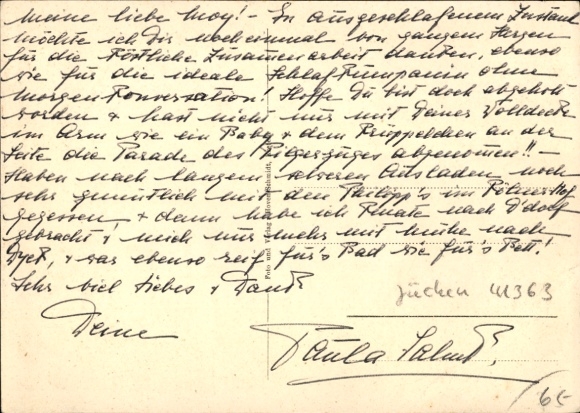 Meine liebe Moy! - In ausgeschlafenem Zustand
möchte ich Dir noch einmal von ganzem Herzen
für die köstliche Zusammenarbeit danken, ebenso
wie für die ideale Schlafkumpanin ohne
Morgenkonversation! Hoffe Du bist doch abgeholt
worden + hast nicht nur mit Deiner Wolldecke
im Arm wie ein Baby + dem Krüppelchen an der
Seite die Parade des Pilgerzuges abgenommen!! -
Haben nach langem schweren Ausladen noch
sehr gemütlich mit den Philipp's im Kölner Hof
gegessen + dann habe ich Renate nach D'dorf
gebracht + mich nur mehr mit Mühe nach
Dyck, + war ebenso reif für's Bad wie für's Bett!
Sehr viel Liebes + Dank
Deine
Paula
Jüchen 41363
65-
Foto und Verlag